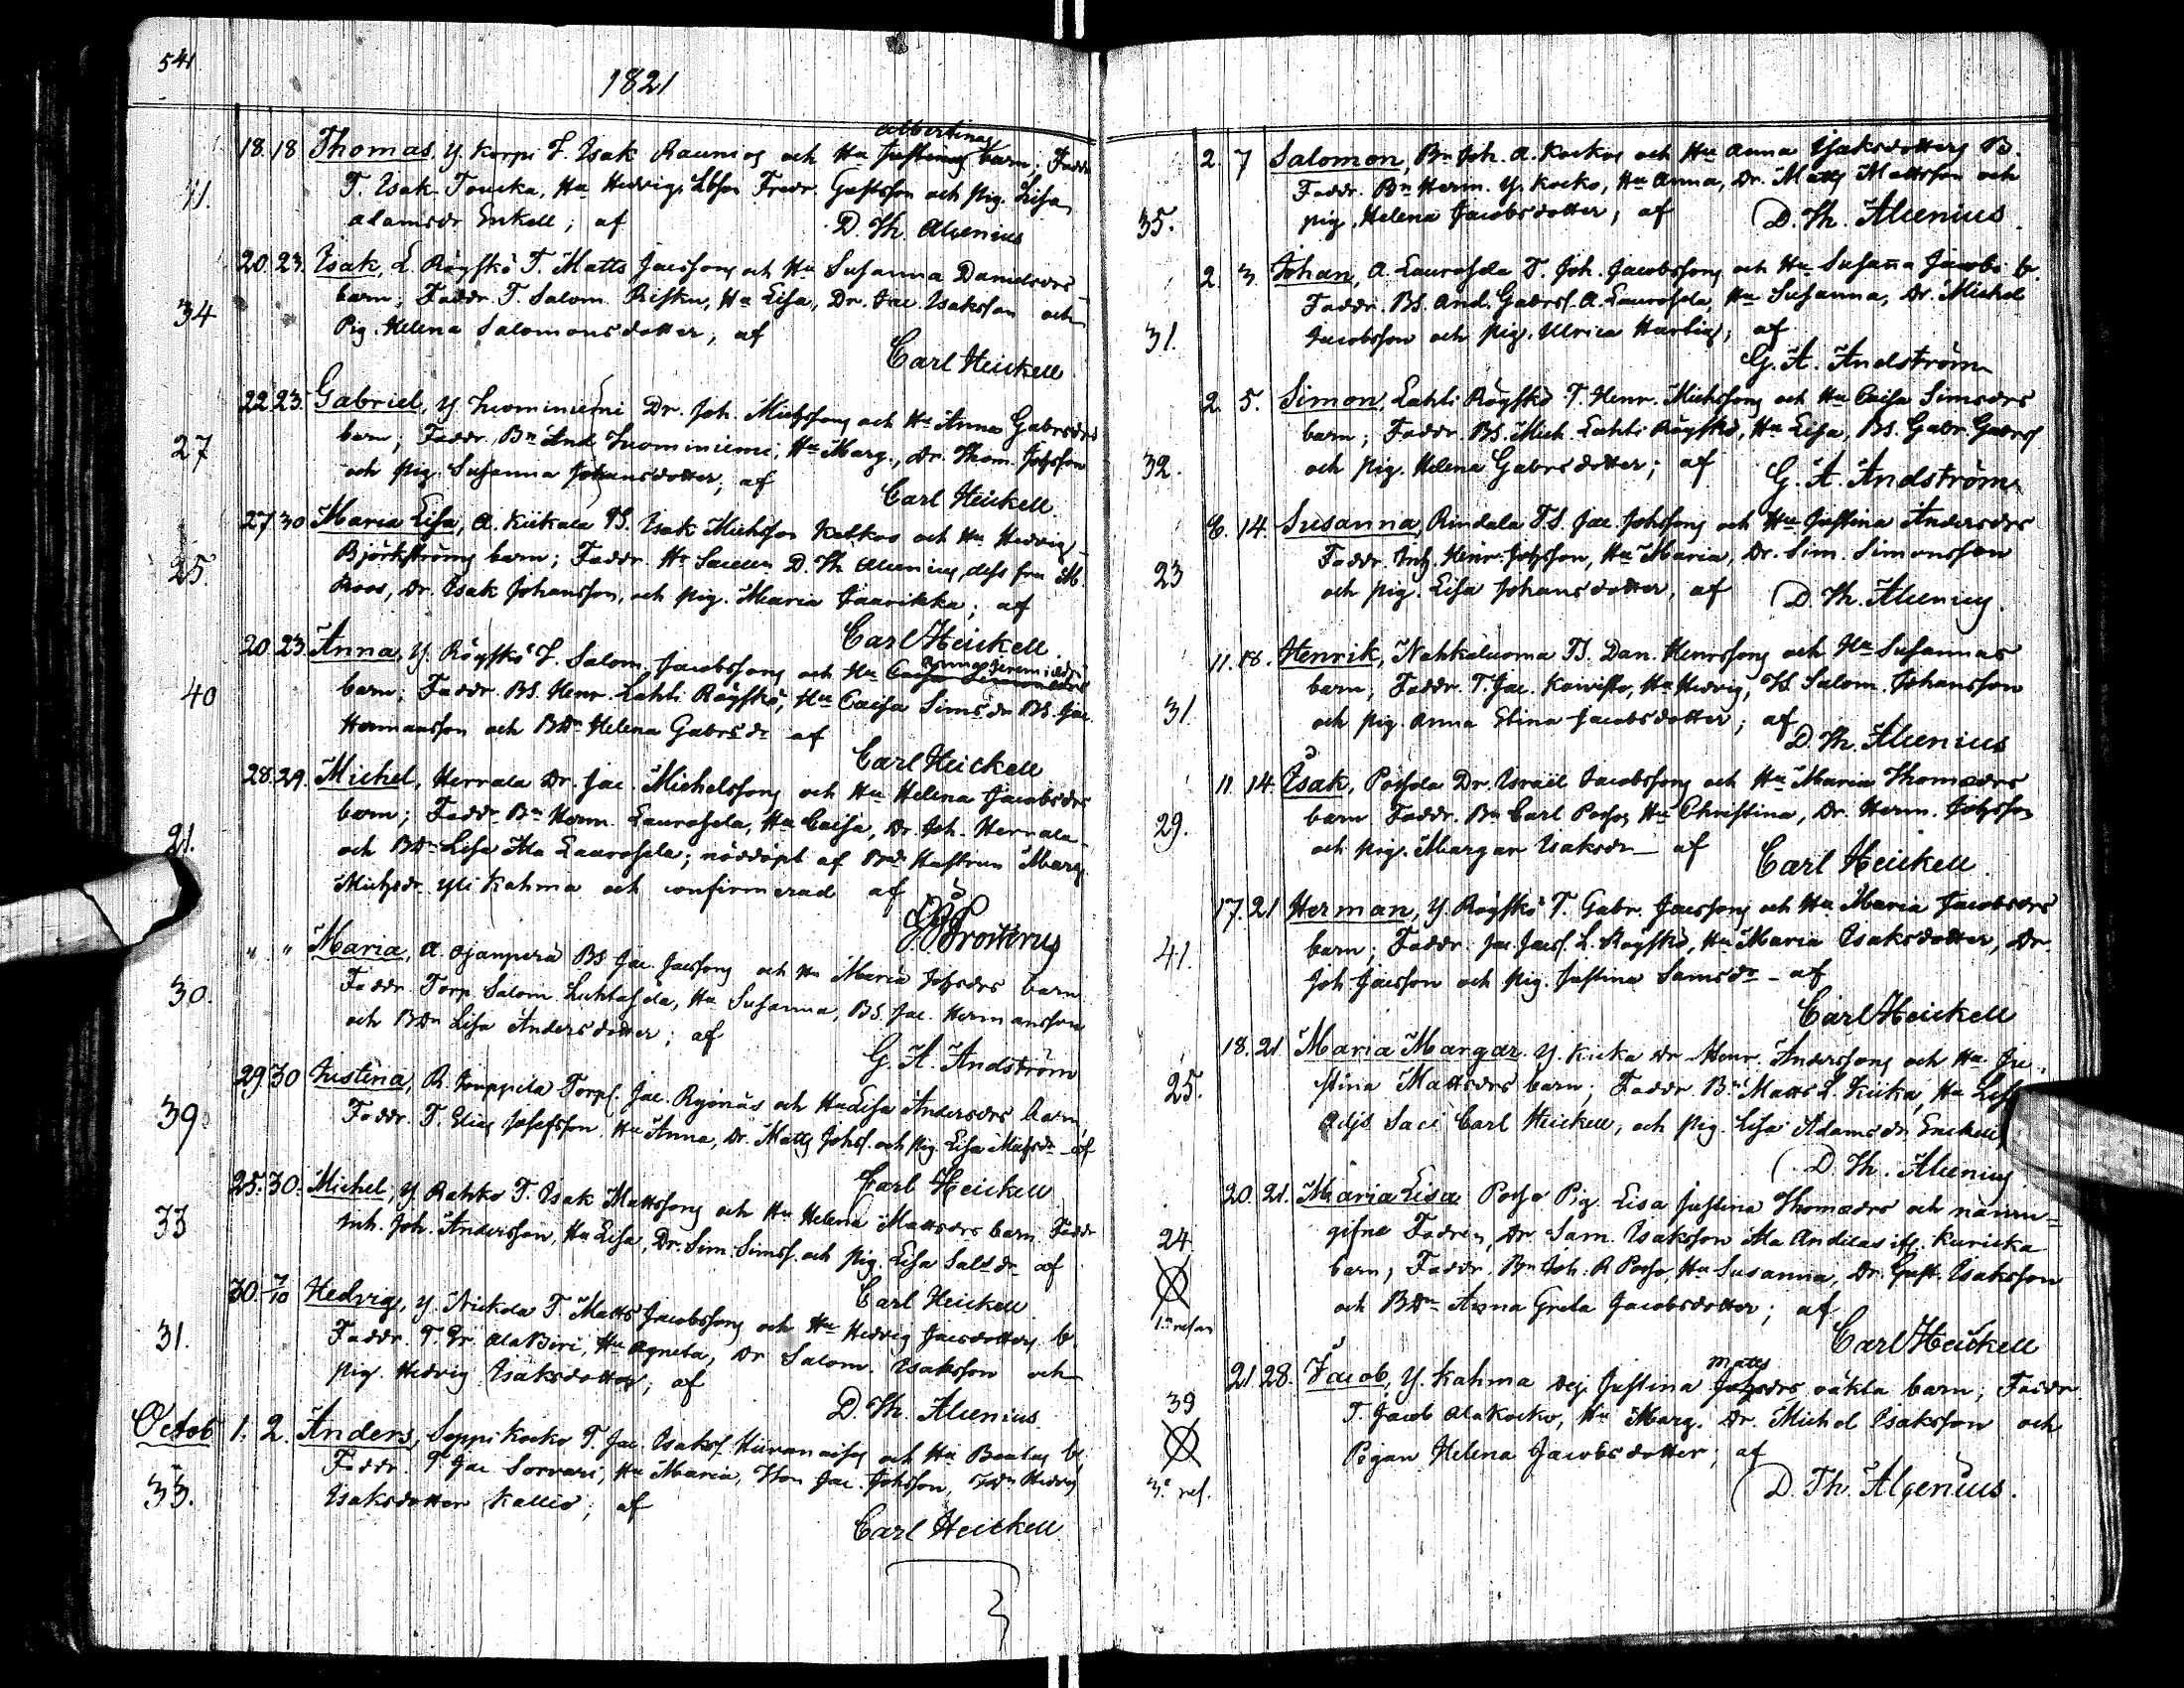 541
1821
18. 18 Thomas, Y. Korpi T. Isak Raumos och Hu Justinas Albertinas barn; Faddr
41. T. Isak Toucka, Hu Hedvig, Fredr. Gustfson och pig. Lisa
Adamsdr Enkell; af D. Th. Alcenius
20. 23. Isak, L. Röyskö T. Matts Jacssons och Hu Susanna Danielsdrs
34 barn; Faddr. T. Salom. Risku, Hu Lisa, Dr. Jac. Isaksson och
Pig. Helena Salomonsdotter; af
Carl Heickell
22 23. Gabriel, Y. Luominiemi Dr. Joh. Michssons och Hu Anna Gabrsdrs
27 barn; Faddr. Bn And. Luominiemi, Hu Marg., Dr. Thom. Johsson
och pig. Susanna Johansdotter; af
Carl Heickell
27 30 Maria Lisa, A. Kiikala BS. Isak Michsson Katkos och Hu Hedvig
25 Björkströms barn; Faddr. Hr D. Th Alcenius, dess fru M.
Roos, Dr. Isak Johansson, och pig. Maria Jaarikka; af
Carl Heickell
20. 23. Anna, Y. Röyskö T. Salom. Jacobssons och Hu Caisa Simonsdrs Anna Jeremiædrs
40 barn; Faddr. BS. Henr. Lahti Röyskö, Hu Caisa Simsdr BS. Jac.
Hermansson och BDr Helena Gabrsdr af
Carl Heickell
28. 29. Michel, Herrala Dr. Jac. Michelssons och Hu Helena Jacobsdrs
21. barn; Faddr. Bn Herm. Laurosela, Hu Caisa, Dr. Joh. Herrala
och BDr Lisa Ala Laurosela; nöddöpt af Bd. Hustrun Marg.
Michsdr Yli Kahma och confirmerad af
" " Maria, A. Ojanperä BS Jac. Jacssons och Hu Maria Johsdrs barn
30. Faddr. Torp. Salom. Luhtasela, Hu Susanna, BS. Jac. Hermansson
och BDr Lisa Andersdotter; af
G. A. Andström
29 30 Justina, R. Jouppila Torp. Jac. Ryönäs och Hu Lisa Andersdrs barn,
39. Faddr. T. Elias Josefsson, Hu Anna, Dr. Matts Johss. och pig. Lisa Michsdr af
Carl Heickell
25. 30. Michel, Y. Rahko T. Isak Mattssons och Hu Helena Mattsdrs barn Faddr
33 Inh. Joh. Andersson, Hu Lisa, Dr. Sim. Simss. och pig. Lisa Salsdr af
Carl Heickell
30. 7/10 Hedvig, Y. Nickola T. Matts Jacobssons och Hu Hedvig Jacsdotters b.
31. Faddr. T. Gr. Ala Biri, Hu Agneta, Dr Salom. Isaksson och
pig. Hedvig Isaksdotter; af
D. Th. Alcenius
Octob 1. 2. Anders, Seppi Kocko T. Jac. Isakss. Hirvanaisis och Hu Beatas b.
33. Faddr. T Jac Sorvari, Hu Maria, Jac. Johsson, Hedvig
Isaksdotter Kallio; af
Carl Heickell
2. 7 Salomon, Bn Joh. A. Kockos och Hu Anna Isaksdotters B.
Faddr. Bn Herm. Y. Kocko, Hu Anna, Dr. Matts Mattsson och
35. pig. Helena Jacobsdotter; af D. Th. Alcenius
2. 3 Johan, A. Laurosela T. Joh. Jacobssons och Hu Susanna Jacobs b.
Faddr. BS. And. Gabrss. A. Laurosela, Hu Susanna, Dr. Michel
31. Jacobsson och pig. Ulrica Harliq; af
G. A. Andström
2. 5. Simon, Lahti Röyskö T. Henr. Michssons och Hu Caisa Simsdrs
barn; Faddr. BS. Mich. Lahti Röyskö, Hu Lisa, BS. Gabr. Gabrss
32. och pig. Helena Gabrsdotter; af G. A. Andström
6. 14. Susanna, Rindala T.S. Jac. Johssons och Hu Justina Andersdrs
Faddr. Inh. Henr. Johsson, Hu Maria, Dr. Sim. Simonsson
23 och pig. Lisa Johansdotter, af D. Th. Alcenius
11. 18. Henrik, Nahkaluoma TS. Dan. Henrssons och Hu Susannas
barn; Faddr. T. Jac. Koivisto, Hu Hedvig, TS. Salom. Johansson
31 och pig. Anna Stina Jacobsdotter; af
D. Th. Alcenius
11. 14. Isak, Posola Dr. Israël Jacobssons och Hu Maria Thomædrs
29. barn Faddr. Bn Carl Poso, Hu Christina, Dr. Herm. Johsson
och pig. Margar Isaksdr af
Carl Heickell
17. 21 Herman, Y. Röyskö T. Gabr. Jacssons och Hu Maria Jacobsdrs
41. barn; Faddr. Jac. Jacss. L. Röyskö, Hu Maria Isaksdotter, Dr.
Joh Jacsson och pig. Justina Samsdr af
Carl Heickell
18. 21 Maria Margar. Y. Kiika Dr Henr. Anderssons och Hu Ju-
25. stina Mattsdrs barn; Faddr. Bn Matts L. Kiika, Hu Lisa
Adjs Saci Carl Heickell, och pig. Lisa Adamsdr Enckell
D. Th. Alcenius
20. 21. Maria Lisa Poso Pig. Lisa Justina Thomædrs och namn=
24 gifne Fadren, Dr. Sam. Isaksson Ala Andilas ifr. Kuricka
barn; Faddr. Bn Joh. R Poso, Hu Susanna, Dr. Gust. Isaksson
och BDr Anna Greta Jacobsdotter; af
1a resan
Carl Heickell
21 28. Jacob, Y. Kahma Dej. Justina Johsdrs Matts oäkta barn; Faddr
39 T. Jacob Ala Kocko, Hu Marg. Dr. Michel Isaksson och
Pigan Helena Jacobsdotter; af
3e res.
D. Th. Alcenius.